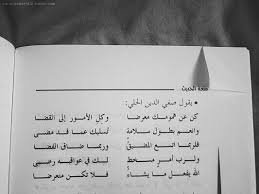 متعة الحديث
• يقول صفي الدين الحلي:
كن عن همومك معرضا وكل الأمور إلى القضا
وانعم بطول سلامة تسليك عما قد مضى
فلربما اتسع المضيق وربما ضاق الفضا
ولرب أمر مسخط لك في عواقبه رضى
الله يفعل ما يشاء فلا تكن متعرضا